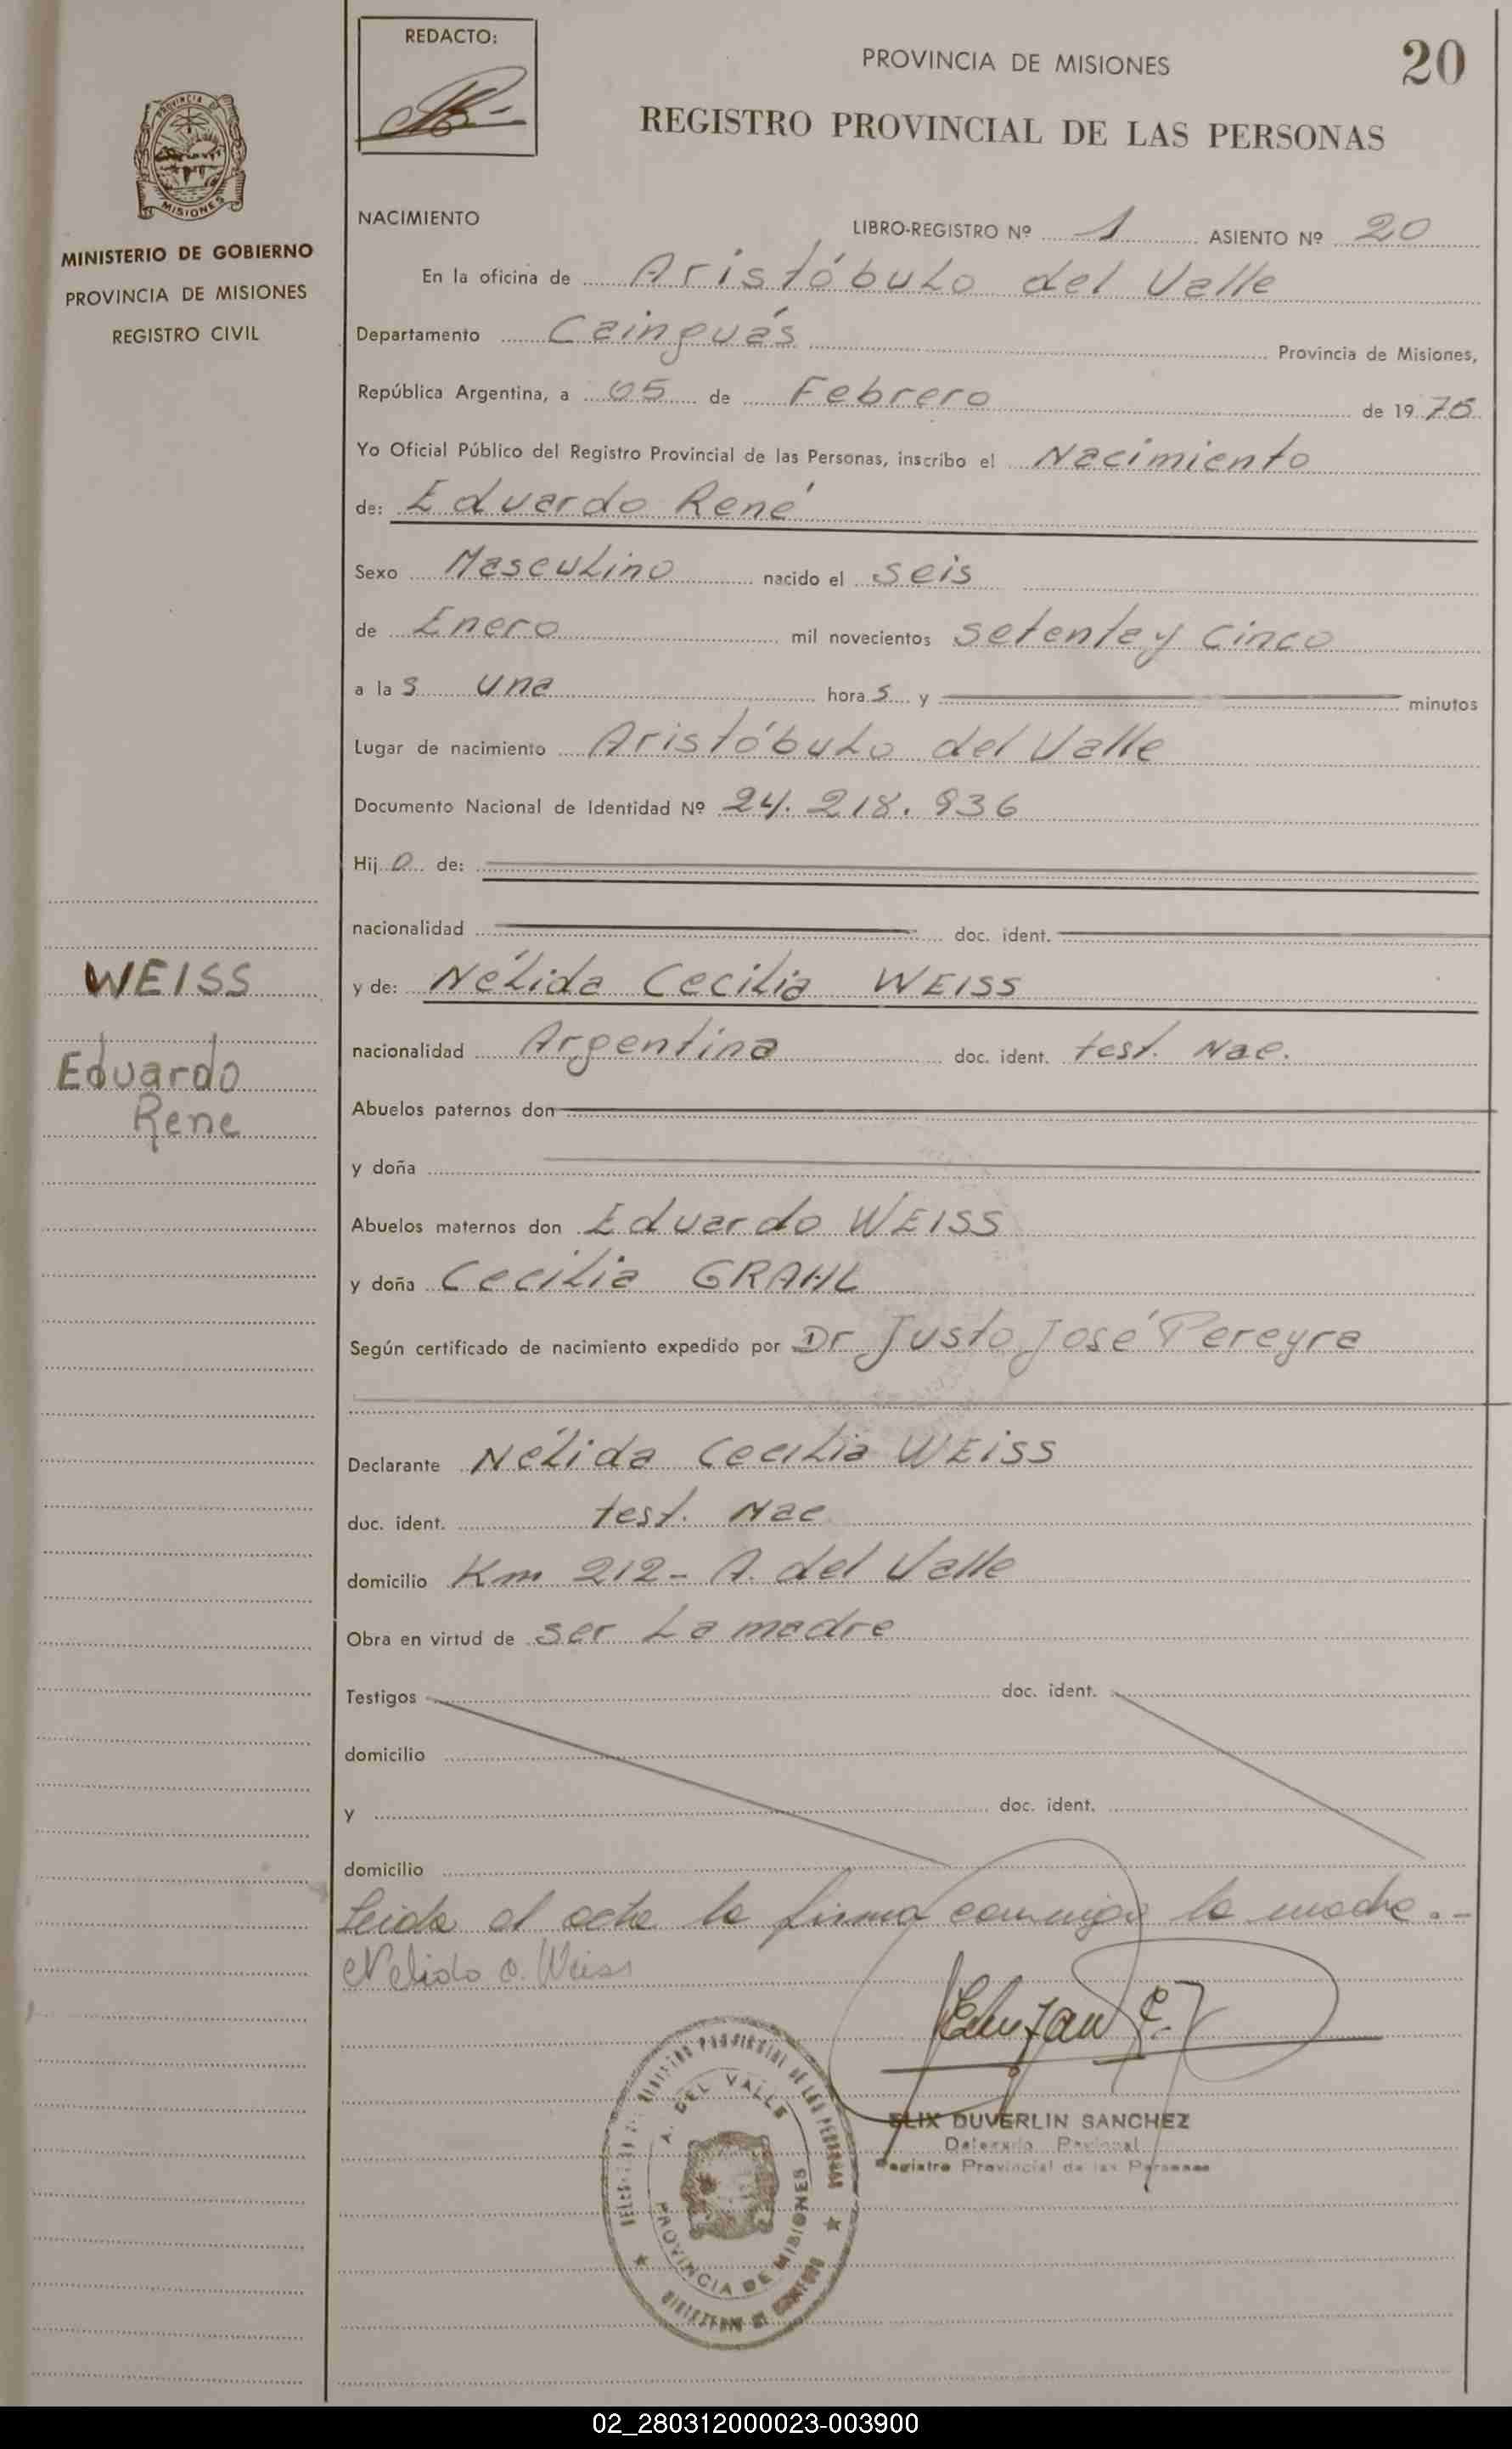 REDACTO:
PROVINCIA DE MISIONES
20
REGISTRO PROVINCIAL DE LAS PERSONAS
PROVINCIA
MISIONES
MINISTERIO DE GOBIERNO
PROVINCIA DE MISIONES
REGISTRO CIVIL
NACIMIENTO
LIBRO-REGISTRO Nº 1 ASIENTO Nº 20
En la oficina de Aristóbulo del Valle
Departamento Cainguás Provincia de Misiones,
República Argentina, a 05 de Febrero de 19 75
Yo Oficial Público del Registro Provincial de las Personas, inscribo el Nacimiento
de: Eduardo René
Sexo Masculino nacido el seis
de Enero mil novecientos setenta y cinco
a la s una hora s y minutos
Lugar de nacimiento Aristóbulo del Valle
Documento Nacional de Identidad Nº 24.218.936
Hij o de:
nacionalidad doc. ident.
WEISS
y de: Nélida Cecilia WEISS
nacionalidad Argentina doc. ident. test. Nac.
Eduardo
Rene
Abuelos paternos don
y doña
Abuelos maternos don Eduardo WEISS
y doña Cecilia GRAHL
Según certificado de nacimiento expedido por Dr Justo José Pereyra
Declarante Nélida Cecilia WEISS
doc. ident. test. Nac
domicilio Km 212- A. del Valle
Obra en virtud de ser la madre
Testigos doc. ident.
domicilio
y doc. ident.
domicilio
Leida el acta la firma conmigo la madre.-
Nelida c. Weiss
A. DEL VALLE
PROVINCIA DE MISIONES
ELIX DUVERLIN SANCHEZ
Registro Provincial de las Personas
02_280312000023-003900